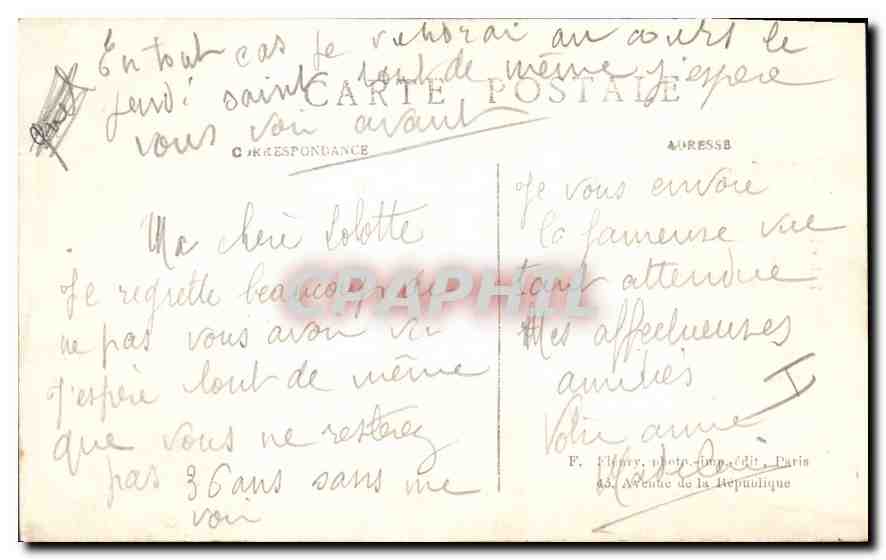 En tout cas je viendrai au cours le
jeudi saint tout de même j'espère
vous voir avant
CARTE POSTALE
CORRESPONDANCE
ADRESSE
Ma chère Lolotte
Je regrette beaucoup de
ne pas vous avoir vu
J'espère tout de même
que vous ne resterez
pas 36 ans sans me
voir
Je vous envoie
la fameuse vue
tant attendue
Mes affectueuses
amitiés
Votre amie
Madelei
F. Fleury, photo.-imp.-édit., Paris
45, Avenue de la République
CPAPHIL